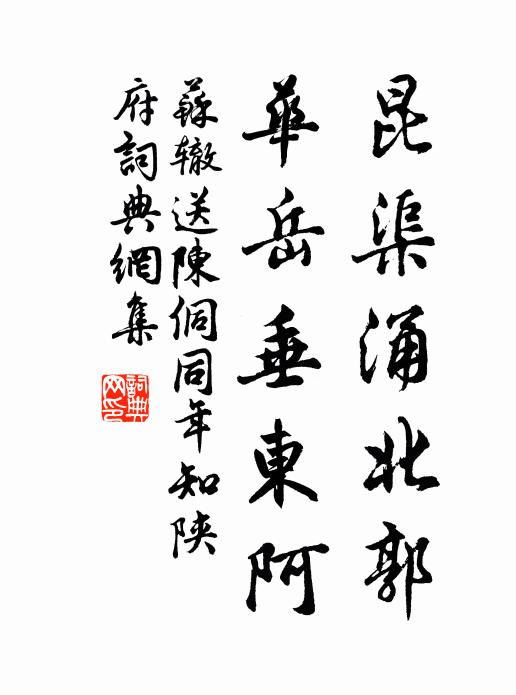 昆渠涌北郭
華岳垂東阿
蘇辙送陳侗同年知陝
府詞典網集
詞典网印